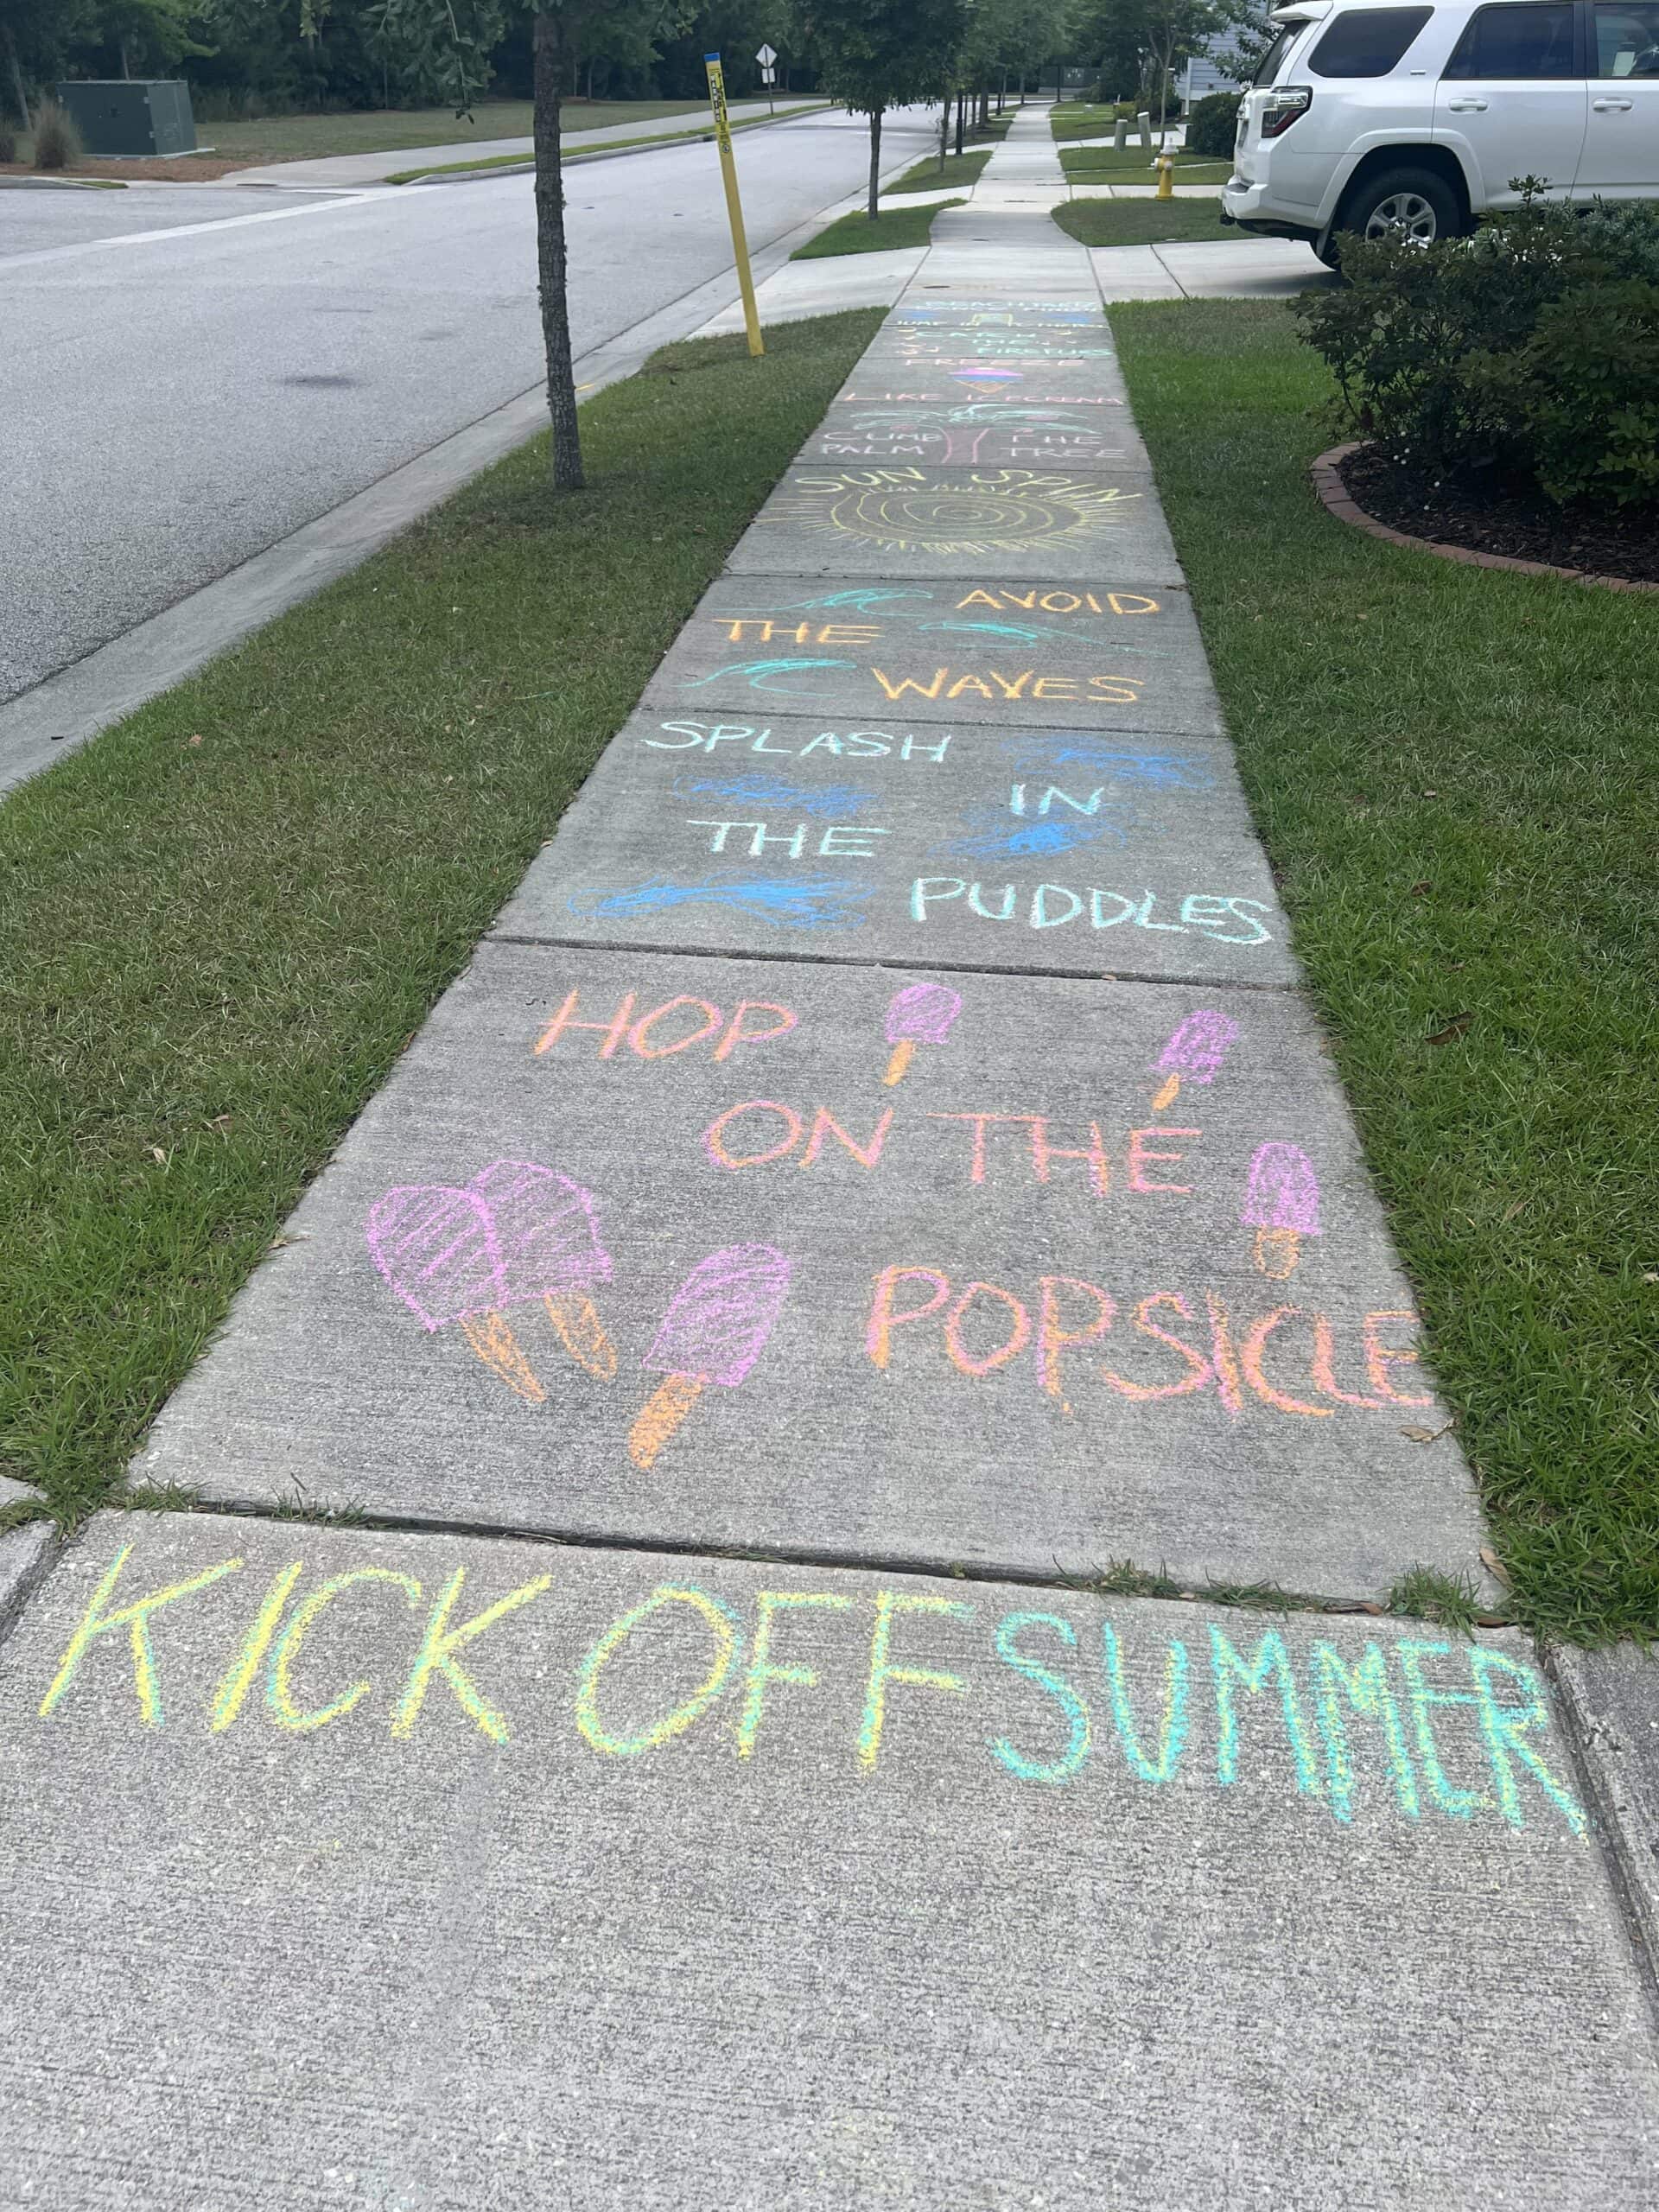 KICK OFF SUMMER
HOP
ON THE
POPSICLE
SPLASH
IN
THE
PUDDLES
AVOID
THE
WAVES
SUN SPIN
CLIMB THE
PALM TREE
FREEZE
LIKE ICECREAM
CATCH
THE